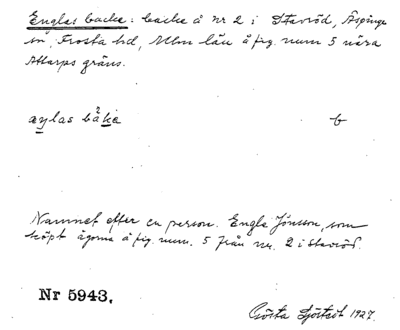 Englas backe: backe å nr 2 i Stavröd, Äspinge
sn, Frosta hd, Mlm län å fig. num 5 nära
Attarps gräns.
æŋlas båka b
Namnet efter en person. Engla Jönsson, som
köpt ägorna å fig. num. 5 från nr. 2 i Stavröd.
Nr 5943.
Gösta Sjöstedt 1927.